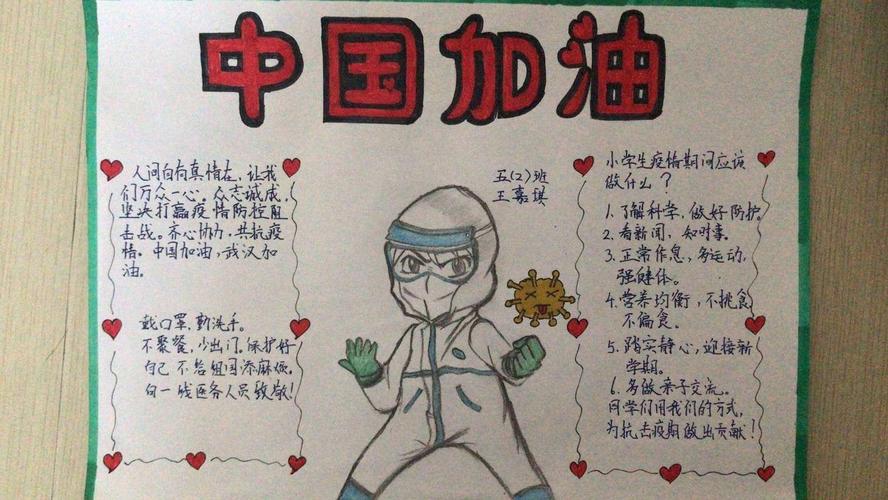 中国加油
人间自有真情在，让我
们万众一心。众志诚成，
坚决打赢疫情防控阻
击战。齐心协力，共抗疫
情。中国加油，武汉加
油。
戴口罩，勤洗手。
不聚餐，少出门，保护好
自己不给祖国添麻烦。
向一线医务人员致敬！
五(2)班
王嘉埧
小学生疫情期间应该
做什么？
1.了解科学，做好防护。
2.看新闻，知时事。
3.正常作息，多运动，
强健体。
4.营养均衡，不挑食
不偏食。
5.踏实静心，迎接新
学期。
6.多做亲子交流。
同学们用我们的方式，
为抗击疫期做出贡献！